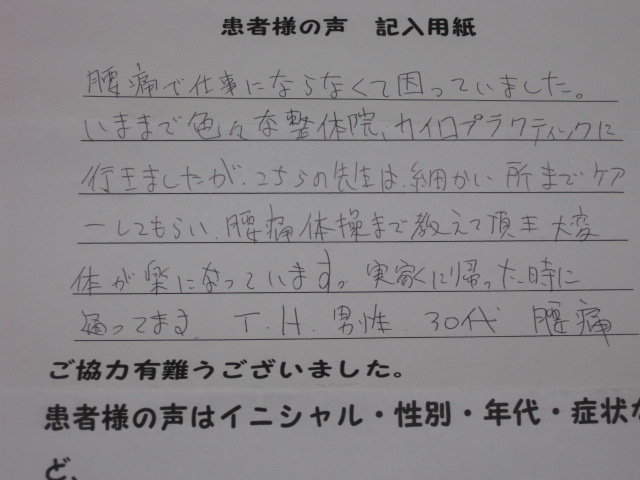 患者様の声 記入用紙
腰痛で仕事にならなくて困っていました。
いままで色々な整体院、カイロプラクティックに
行きましたが、こちらの先生は、細かい所までケア
ーしてもらい、腰痛体操まで教えて頂き、大変
体が楽になっています。実家に帰った時に
通ってます。 T.H. 男性. 30代 腰痛
ご協力有難うございました。
患者様の声はイニシャル・性別・年代・症状な
ど、